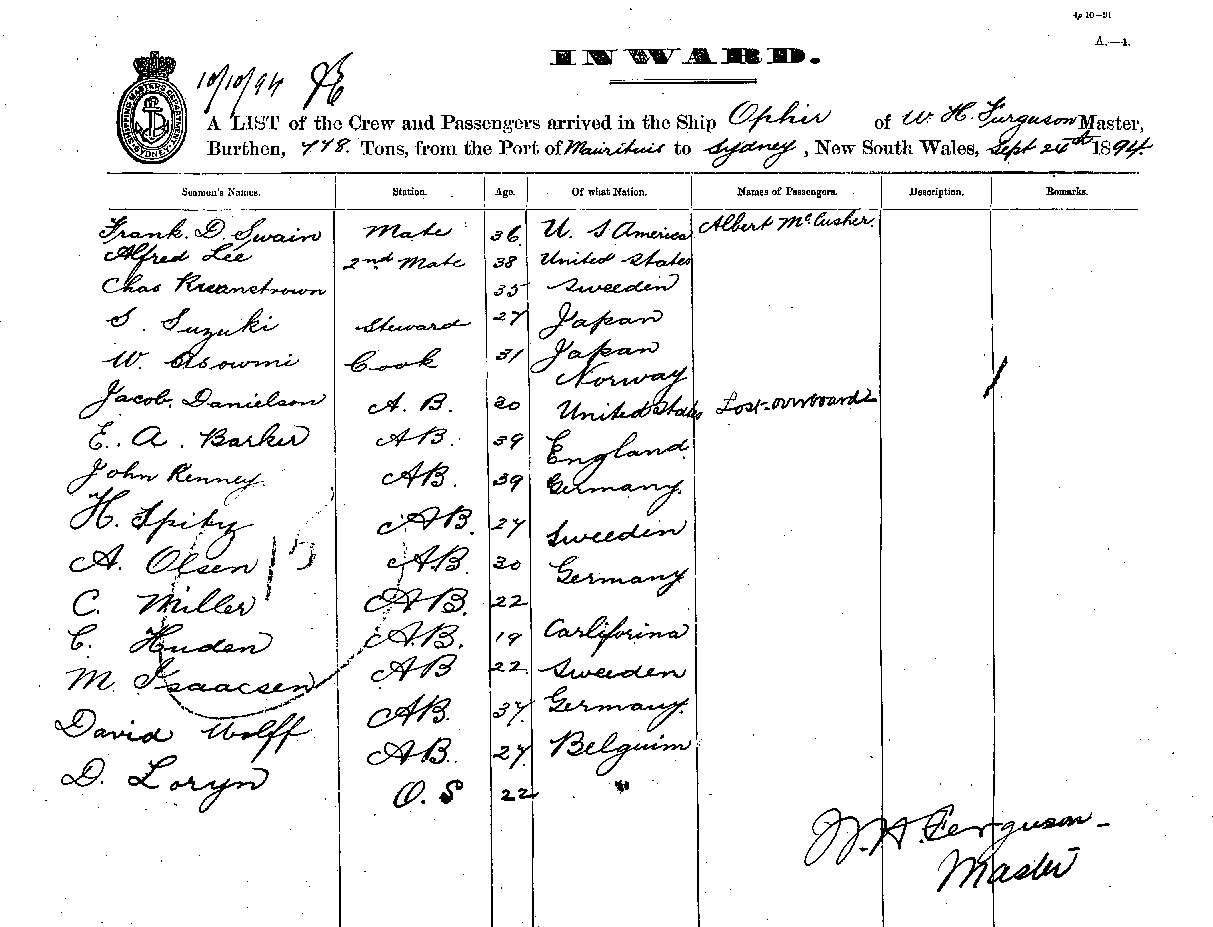 4p 10—91
A.—4.
INWARD.
10/10/94
SHIPPING MASTERS DEPARTMENT SYDNEY
A LIST of the Crew and Passengers arrived in the Ship Ophir of W. H. Furguson Master,
Burthen, 778. Tons, from the Port of Mauritius to Sydney, New South Wales, Sept 26th 1894
Seamen's Names. Station. Age. Of what Nation. Names of Passengers. Description. Remarks.
Frank. D. Swain Mate 36 U. S America Albert McCusher.
Alfred Lee 2nd Mate 38 United States
Chas 35 Sweeden
S. Suzuki Steward 27 Japan
W. Osowmi Cook 31 Japan
Norway
Jacob. Danielson A. B. 20 United States Lost overboard
E. A. Barker AB. 39 England.
John Kenney. AB. 39 Germany.
H. AB. 27 Sweeden
A. Olsen 15 AB. 30 Germany
C. Miller AB. 22
C. Huden A.B. 19 Carliforina
M. Isaacsen AB 22 Sweeden
David Wolff AB. 37 Germany.
D. Loryn AB. 27 Belguim
O. S 22 "
W. H. Ferguson
Master